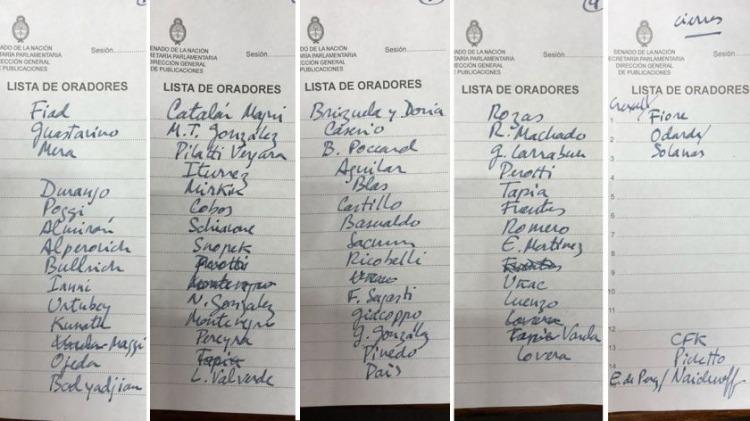 NADO DE LA NACIÓN
TARÍA PARLAMENTARIA
CCIÓN GENERAL
PUBLICACIONES
Sesión
LISTA DE ORADORES
Fiad
Guastavino
Mera
Durango
Poggi
Almirón
Alperovich
Bullrich
Ianni
Urtubey
Kunath
Maggi
Ojeda
Bodyadjian
ENADO DE LA NACIÓN
CRETARÍA PARLAMENTARIA
RECCIÓN GENERAL
E PUBLICACIONES
Sesión
LISTA DE ORADORES
Catalán Magni
M.T. González
Pilatti Vergara
Iturrez
Mirkin
Cobos
Schiavone
Snopek
Perotti
Montenegro
N. González
Montenegro
Pereyra
Tapia
L. Valverde
ENADO DE LA NACIÓN
CRETARÍA PARLAMENTARIA
RECCIÓN GENERAL
PUBLICACIONES
Sesión
LISTA DE ORADORES
Brizuela y Doria
Caserio
B. Poccard
Aguilar
Blas
Castillo
Basualdo
Sacnun
Ricobelli
Uñac
F. Sagasti
Giacoppo
G. González
Pinedo
Pais
4
SENADO DE LA NACIÓN
ECRETARÍA PARLAMENTARIA
DIRECCIÓN GENERAL
DE PUBLICACIONES
Sesión
LISTA DE ORADORES
Rozas
R. Machado
G. Larraburu
Perotti
Tapia
Fuentes
Romero
E. Martínez
Fuentes
Uñac
Luenzo
Lovera
Tapia Varela
Lovera
cierres
SENADO DE LA NACIÓN
SECRETARÍA PARLAMENTARIA
DIRECCIÓN GENERAL
DE PUBLICACIONES
Sesión
LISTA DE ORADORES
1 Crexell/ Fiore
2 Odarda/
3 Solanas
4
5
6
7
8
9
10
12
13 CFK
Pichetto
14 E. de Perz/ Naidenoff